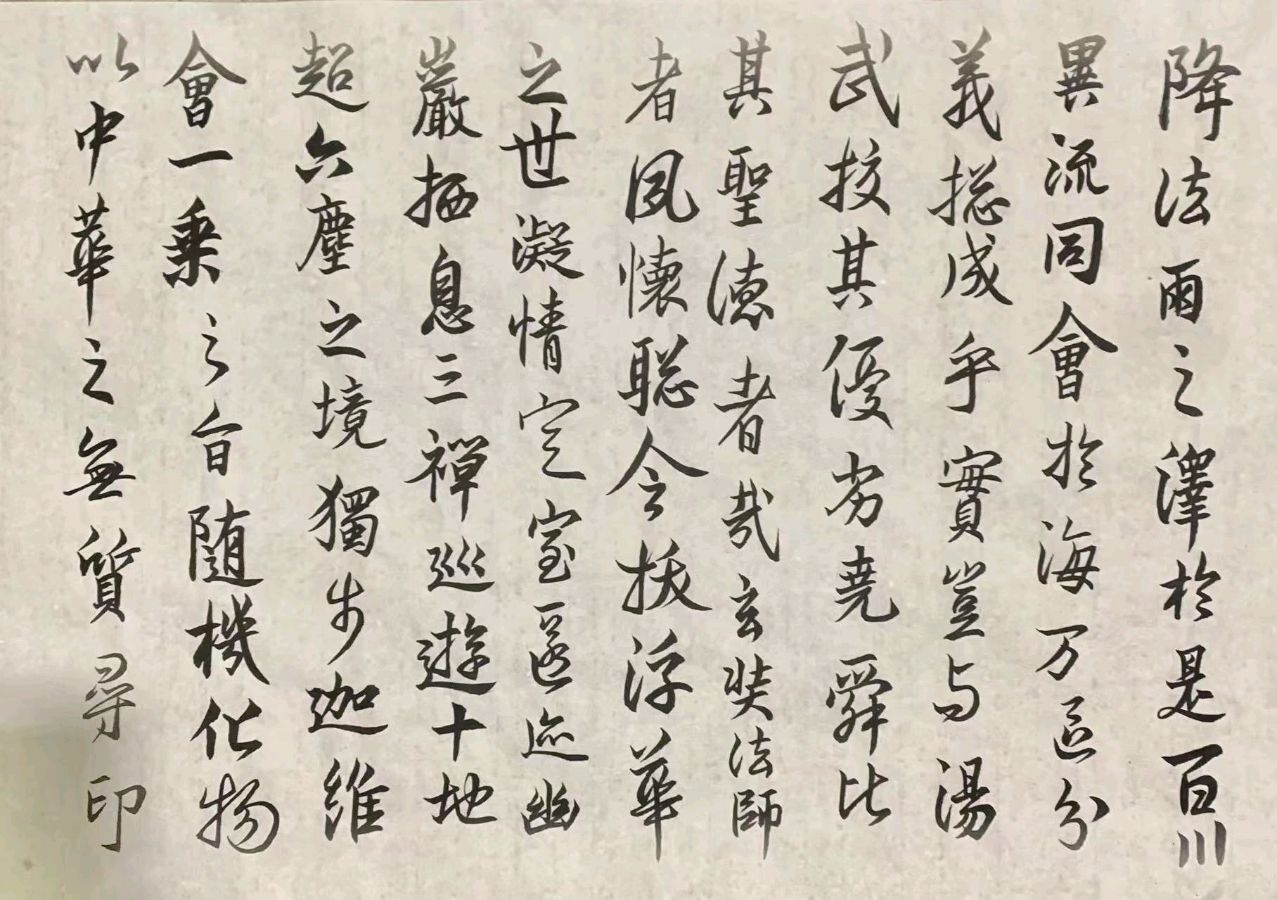 降法雨之澤於是百川
異流同會於海万區分
義揔成乎實豈与湯
武挍其優劣堯舜比
其聖德者哉玄奘法師
者夙懷聡令扶浮華
之世凝情定室匿迹幽
巖栖息三禪巡遊十地
超六塵之境獨步迦維
會一乗之旨随機化物
以中華之無質尋印